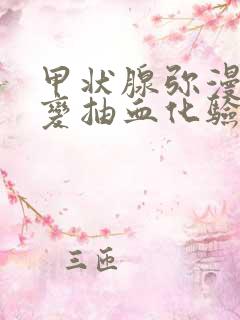 甲状腺弥漫
变抽血化验
三匝